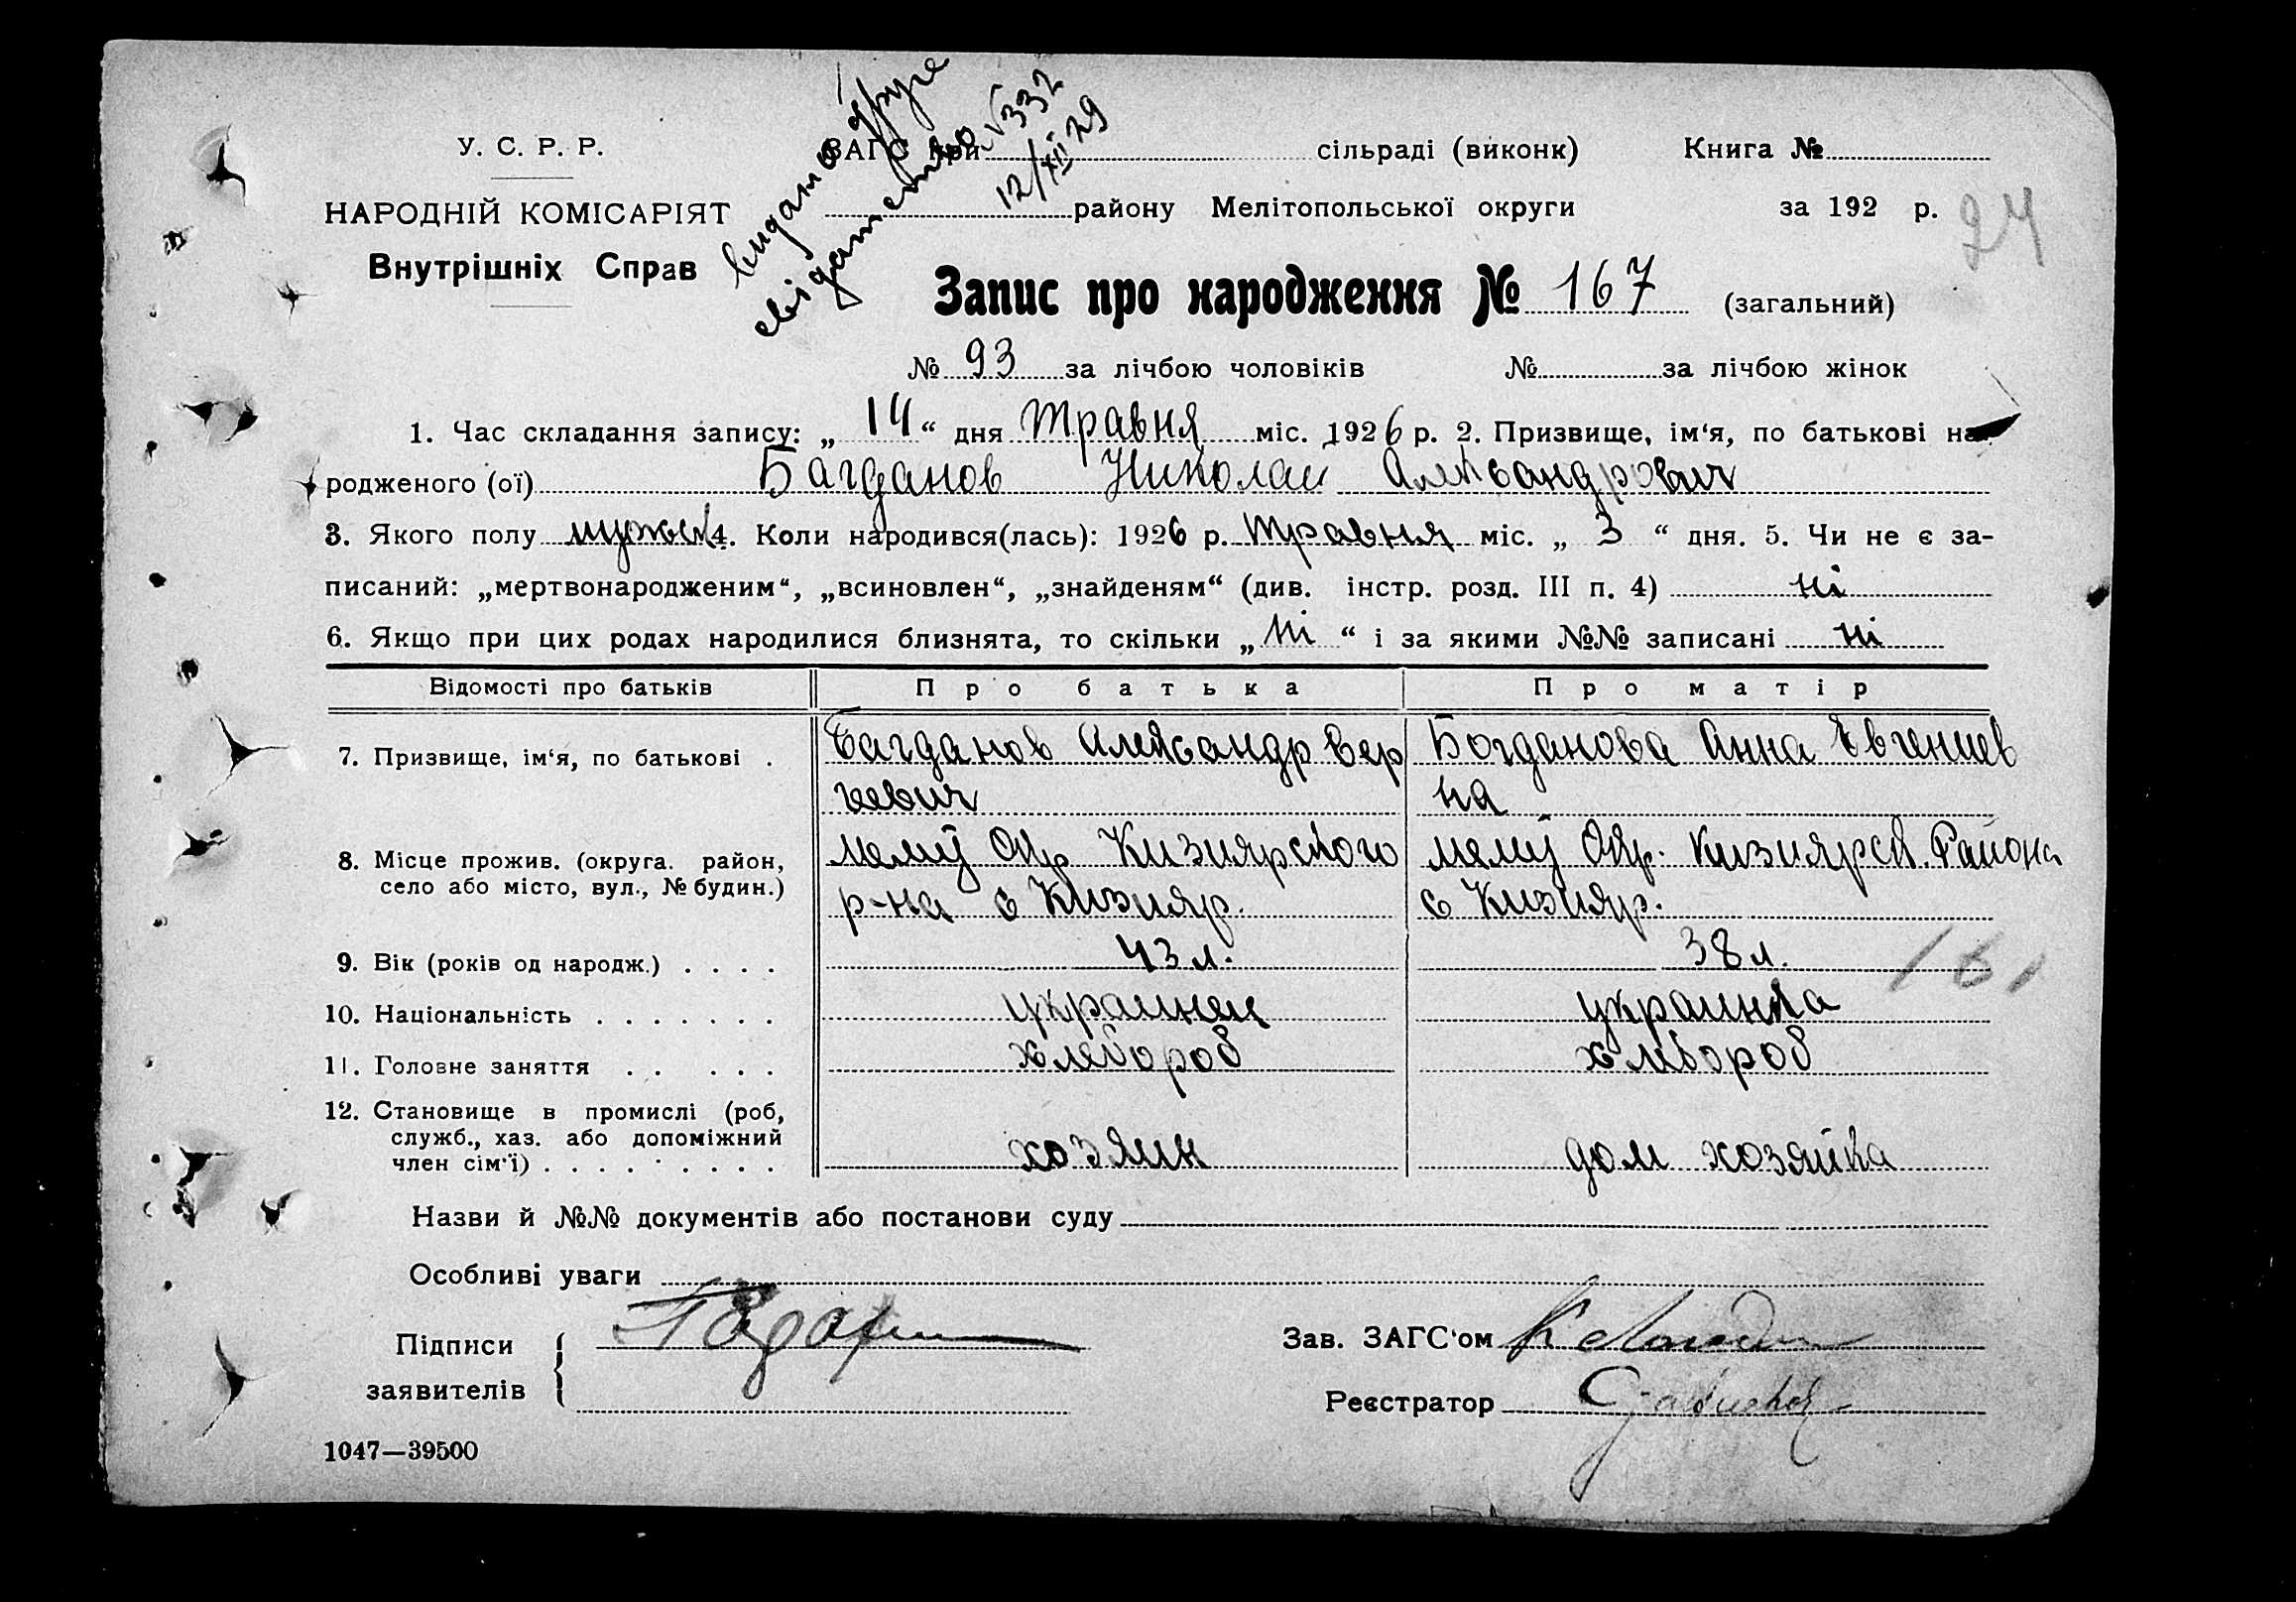 видано друге
свідаптство №332
12/XII 29
У. С. Р. Р.
НАРОДНІЙ КОМІСАРІЯТ
Внутрішніх Справ
ЗАГС при сільраді (виконк) Книга №
району Мелітопольської округи за 192 р.
24
Запис про народження № 167 (загальний)
№ 93 за лічбою чоловіків № за лічбою жінок
1. Час складання запису: „ 14 “ дня Травня міс. 1926 р. 2. Призвище, ім‘я, по батькові на-
родженого (ої) Багданов Николаи Александрович
3. Якого полу мужск 4. Коли народився(лась): 1926 р. Травня міс. „ 3 “ дня. 5. Чи не є за-
писаний: „мертвонародженим“, „всиновлен“, „знайденям“ (див. інстр. розд. III п. 4) ні
6. Якщо при цих родах народилися близнята, то скільки „ ні “ і за якими №№ записані ні
Відомості про батьків Про батька Про матір
7. Призвище, ім‘я, по батькові . Багданов Александр Сер Богданова Анна Евгениев
геевич на
8. Місце прожив. (округа. район, Мелит Окр Кизиярского Мелит Окр. Кизиярск. Района
село або місто, вул., № будин.) р-на с Кизияр. с Кизияр.
9. Вік (років од народж.) . . . . 43 л. 38 л.
161
10. Національність . . . . . . . украинец украинка
11. Головне заняття . . . . . хлебороб хлібороб
12. Становище в промислі (роб,
служб., хаз. або допоміжний
член сім‘ї) . . . . . . . . . хозяин дом хозяйка
Назви й №№ документів або постанови суду
Особливі уваги
Підписи
заявителів
Зав. ЗАГС‘ом
Реєстратор
1047—39500